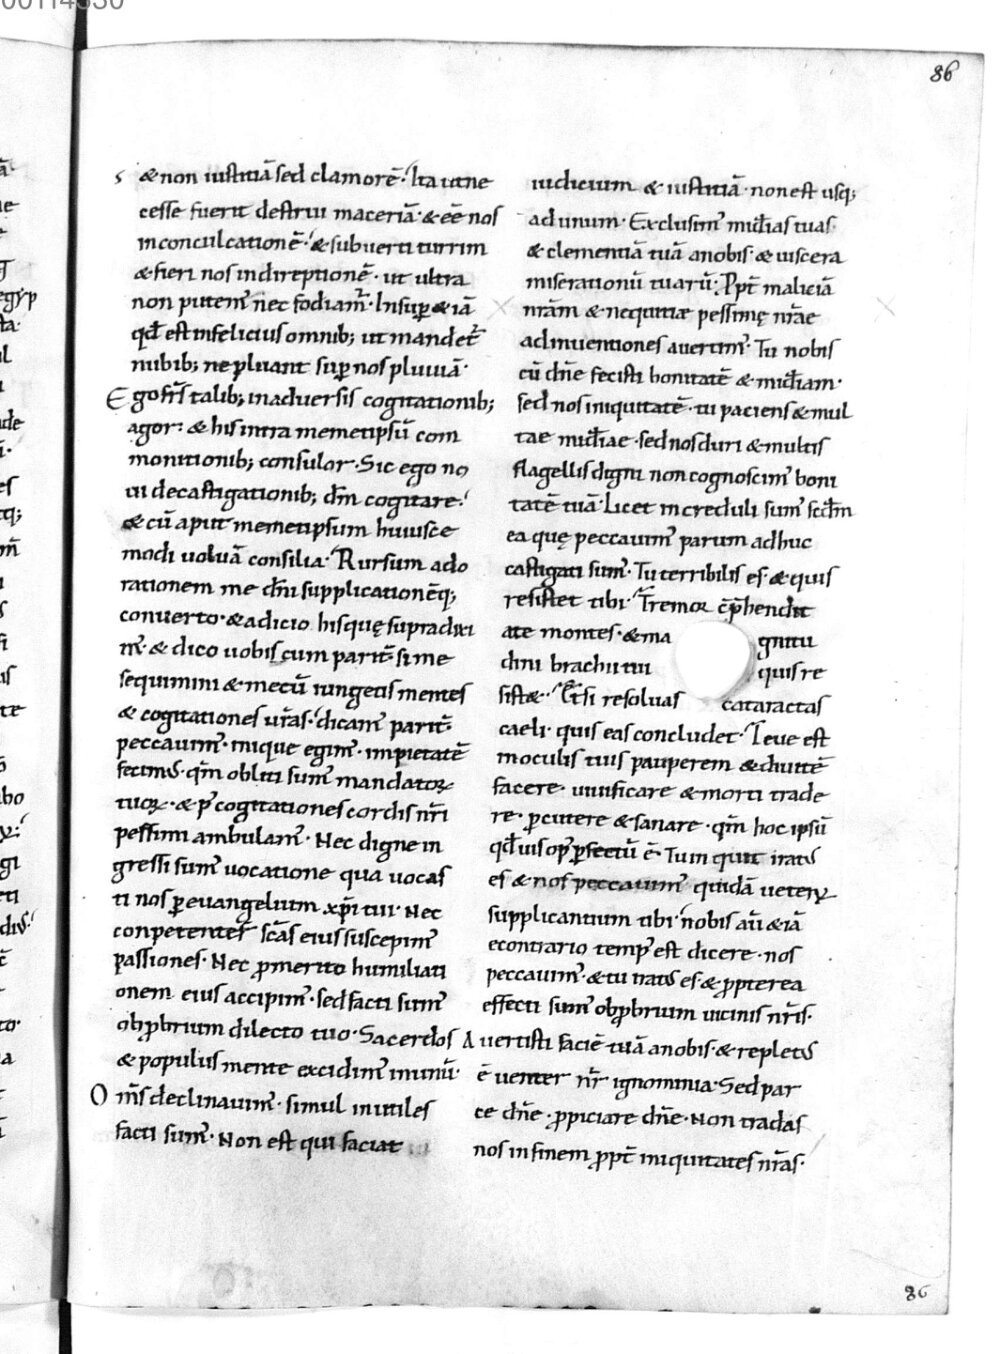 00114330
86
& non iustitiā sed clamorē. Ita ut ne
cesse fuerit destrui maceriā. & eē nos
in conculcationē. & subuerti turrim
& fieri nos in direptionē. ut ultra
non putem᷒ nec fodiam᷒. Insup̱ & iā
qđ est infelicius omnib; ut mandet᷒
nubib; ne pluant sup̱ nos pluuiā.
Ego fr̄s talib; in aduersis cogitationib;
agor. & his intra memetipsū com
monitionib; consulor. Sic ego no
ui de castigationib; dn̄i cogitare.
& cū aput memetipsum huiusce
modi uoluā consilia. Rursum ad o
rationem me dn̄i supplicationēq;
conuerto. & adicio hisquę supra dixi
m᷒. & dico uobiscum parit̄. si me
sequimini & mecū iungetis mentes
& cogitationes ur̄as. dicam᷒ parit̄.
peccauim᷒. inique egim᷒. impietatē
fecim᷒. qm̄ obliti sum᷒ mandatoꝝ
tuoꝝ. & p᷒ cogitationes cordis nr̄i
pessimi ambulam᷒. Nec digne in
gressi sum᷒ uocatione qua uocas
ti nos ꝑ euangelium xp̄i tui. Nec
conpetenter sc̄as eius suscepim᷒
passiones. Nec ꝓmerito humiliati
onem eius accipim᷒. sed facti sum᷒
obꝓbrium dilecto tuo. Sacerdos
& populus mente excidim᷒ in unū.
Om̄s declinauim᷒. simul inutiles
facti sum᷒. Non est qui faciat
iudicium & iustitiā. non est usq;
ad unum. Exclusim᷒ mīdias tuas
& clementiā tuā a nobis. & uiscera
miserationū tuarū. Ppt̄ maliciā
nr̄am & nequitiæ pessimę nr̄ae
adinuentiones auertim᷒. Tu nobis
cū dn̄e fecisti bonitatē & mīdiam.
sed nos iniquitatē. tu paciens & mul
tae mīdiae. sed nos duri & multis
flagellis digni non cognoscim᷒ boni
tatē tuā. Licet increduli sum᷒ scd̄m
ea quę peccauim᷒ parum adhuc
castigati sum᷒. Tu terribilis es. & quis
resistet tibi. Tremor cp̄hendit
ate montes. & ma gnitu
dini brachii tui quis re
sist&. Etsi resoluas cataractas
caeli. quis eas concludet. Leue est
in oculis tuis pauperem & diuitē
facere. uiuificare & morti trade
re. ꝑcutere & sanare. qm̄ hoc ipsū
qđ uis op᷒ ꝑfectū ē. Tum quit irat᷒
es & nos peccauim᷒ quidā ueteꝝ
supplicantium tibi. nobis aū & iā
econtrario temp᷒ est dicere. nos
peccauim᷒. & tu irat᷒ es. & ꝓpterea
effecti sum᷒ obꝓbrium uicinis nr̄is.
Auertisti faciē tuā a nobis. & replet᷒
ē uenter nr̄ ignominia. Sed par
ce dn̄e. ꝓpiciare dn̄e. Non tradas
nos in finem ꝓpt̄ iniquitates nr̄as.
86